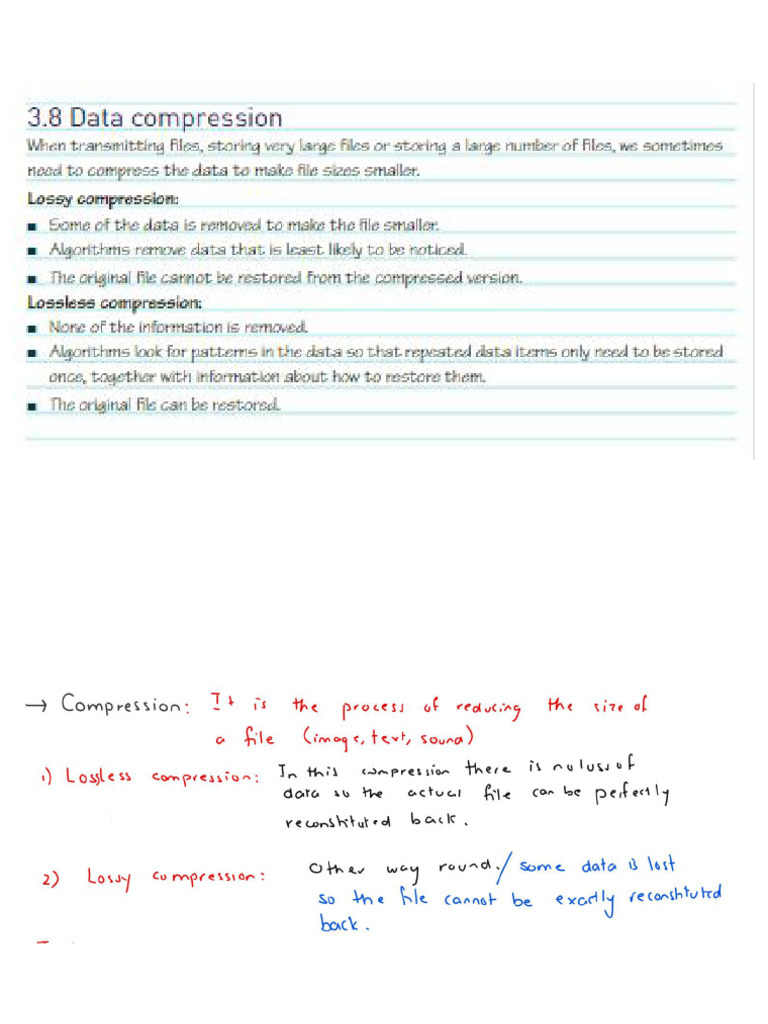 3.8 Data compression
When transmitting files, storing very large files or storing a large number of files, we sometimes
need to compress the data to make file sizes smaller.
Lossy compression:
■ Some of the data is removed to make the file smaller.
■ Algorithms remove data that is least likely to be noticed.
■ The original file cannot be restored from the compressed version.
Lossless compression:
■ None of the information is removed.
■ Algorithms look for patterns in the data so that repeated data items only need to be stored
once, together with information about how to restore them.
■ The original file can be restored.
→ Compression: It is the process of reducing the size of
a file (image, text, sound)
1) Lossless compression: In this compression there is no loss of
data so the actual file can be perfectly
reconstituted back.
2) Lossy compression: Other way round. / some data is lost
so the file cannot be exactly reconstituted
back.